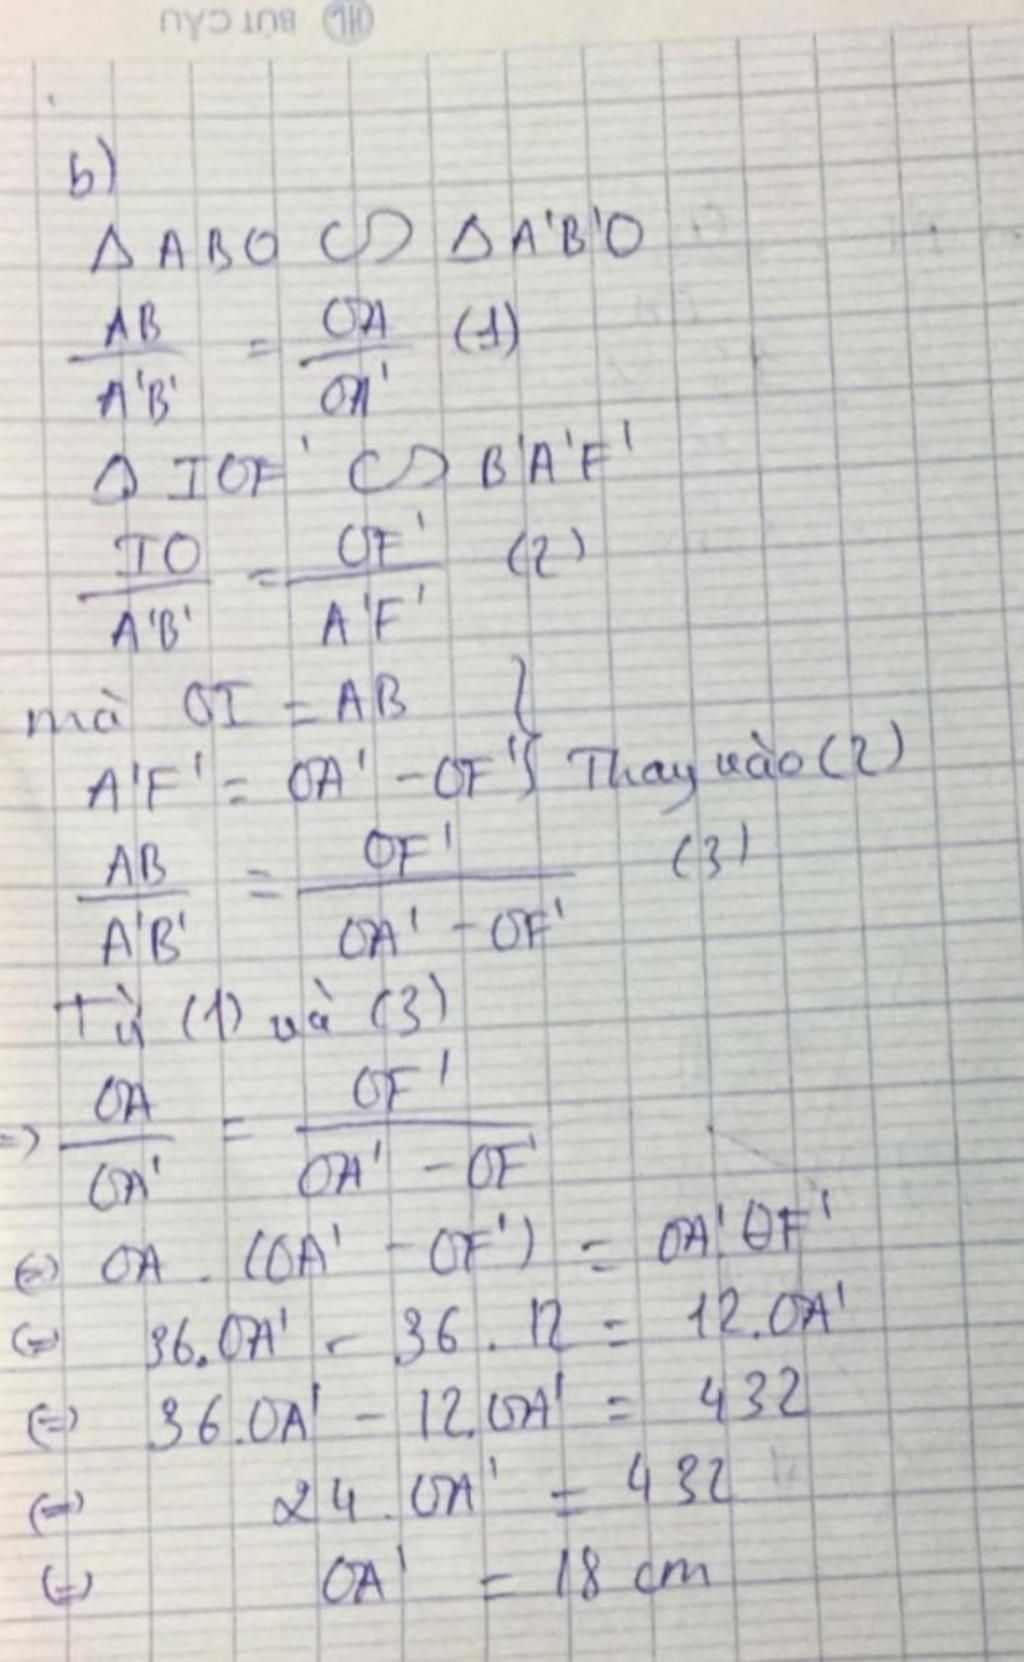 BÚT CẬU
b)
Δ ABO ∽ Δ A'B'O
AB/A'B' = OA/OA' (1)
Δ IOF' ∽ B'A'F'
IO/A'B' = OF'/A'F' (2)
mà OI = AB }
A'F' = OA' - OF' } Thay vào (2)
AB/A'B' = OF'/(OA' - OF') (3)
Từ (1) và (3)
=> OA/OA' = OF'/(OA' - OF')
(=) OA . (OA' - OF') = OA' OF'
(=) 36.OA' - 36 . 12 = 12.OA'
(=) 36.OA' - 12.OA' = 432
(=) 24 . OA' = 432
(=) OA' = 18 cm